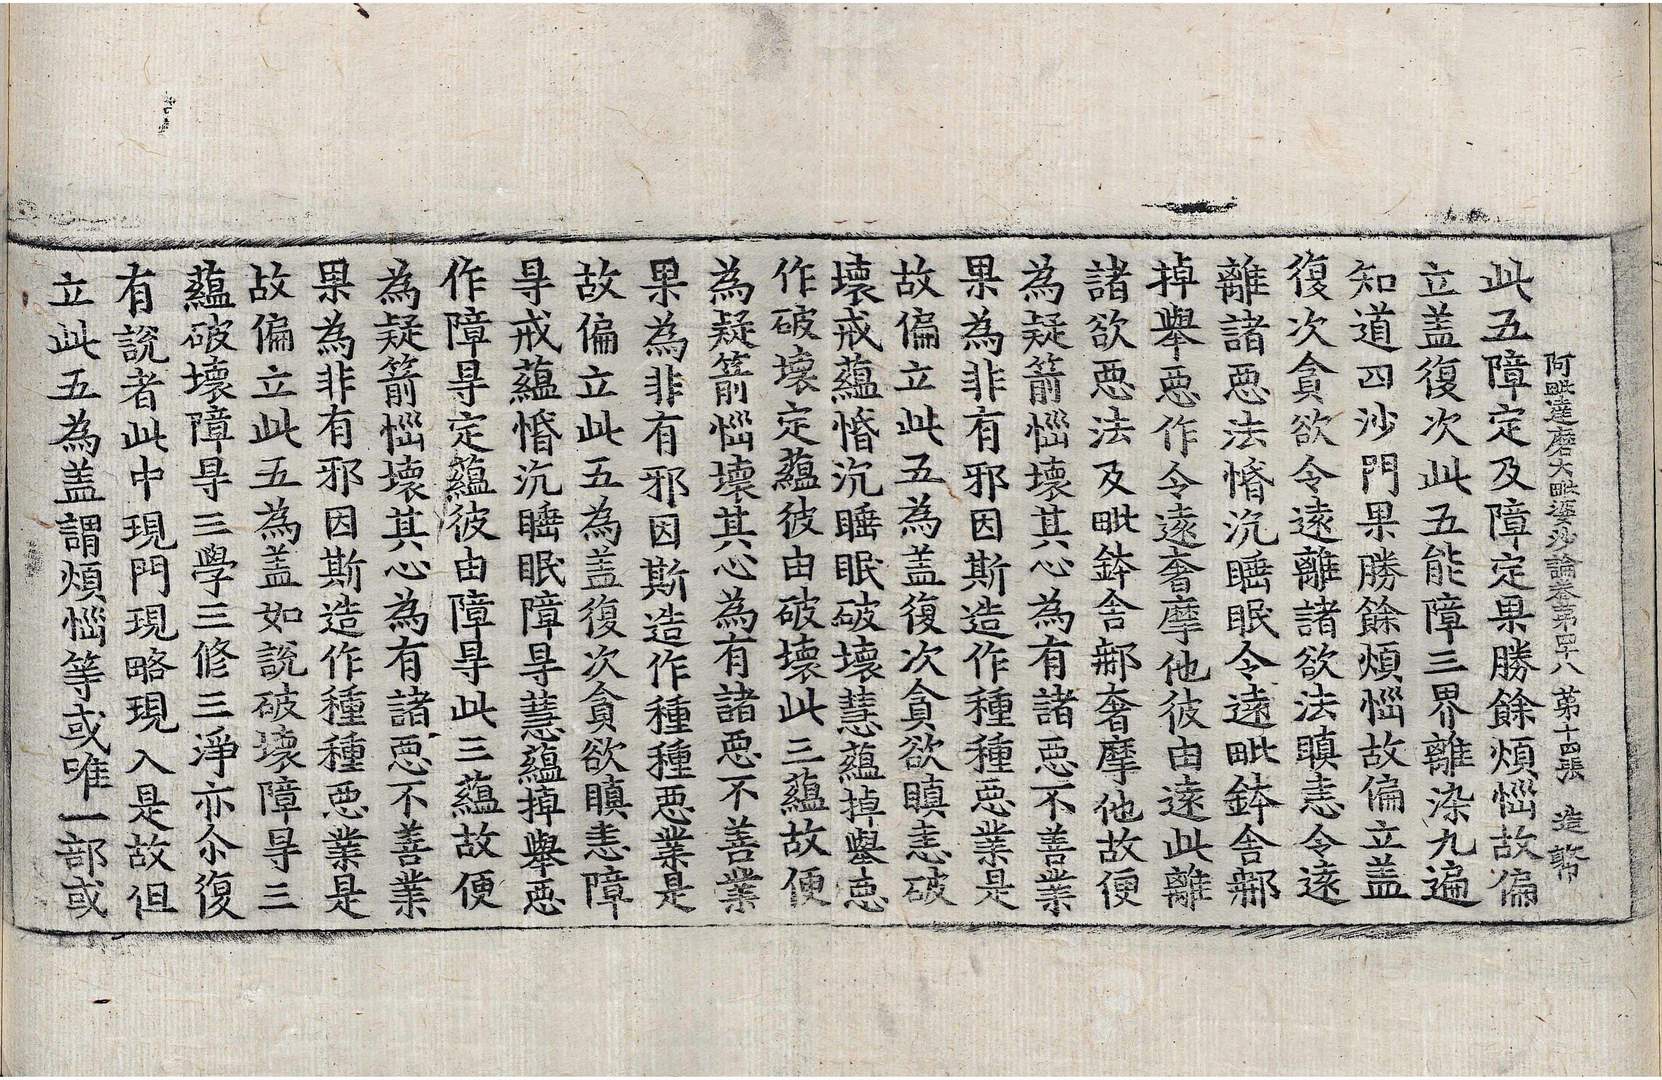 阿毗達磨大毗婆沙論卷苐四十八 苐十四張 造幣
此五障定及障定果勝餘煩惱故偏
立盖復次此五能障三界離染九遍
知道四沙門果勝餘煩惱故偏立盖
復次貪欲令遠離諸欲法瞋恚令遠
離諸惡法惛沉睡眠令遠毗鉢舍𨚗
掉舉惡作令遠奢摩他彼由遠此離
諸欲惡法及毗鉢舍𨚗奢摩他故便
為疑箭惱壞其心為有諸惡不善業
果為非有邪因斯造作種種惡業是
故偏立此五為盖復次貪欲瞋恚破
壞戒蘊惛沉睡眠破壞慧蘊掉舉惡
作破壞定蘊彼由破壞此三蘊故便
為疑箭惱壞其心為有諸惡不善業
果為非有邪因斯造作種種惡業是
故偏立此五為盖復次貪欲瞋恚障
㝵戒蘊惛沉睡眠障㝵慧蘊掉舉惡
作障㝵定蘊彼由障㝵此三蘊故便
為疑箭惱壞其心為有諸惡不善業
果為非有邪因斯造作種種惡業是
故偏立此五為盖如說破壞障㝵三
蘊破壞障㝵三學三修三淨亦尒復
有說者此中現門現略現入是故但
立此五為盖謂煩惱等或唯一部或